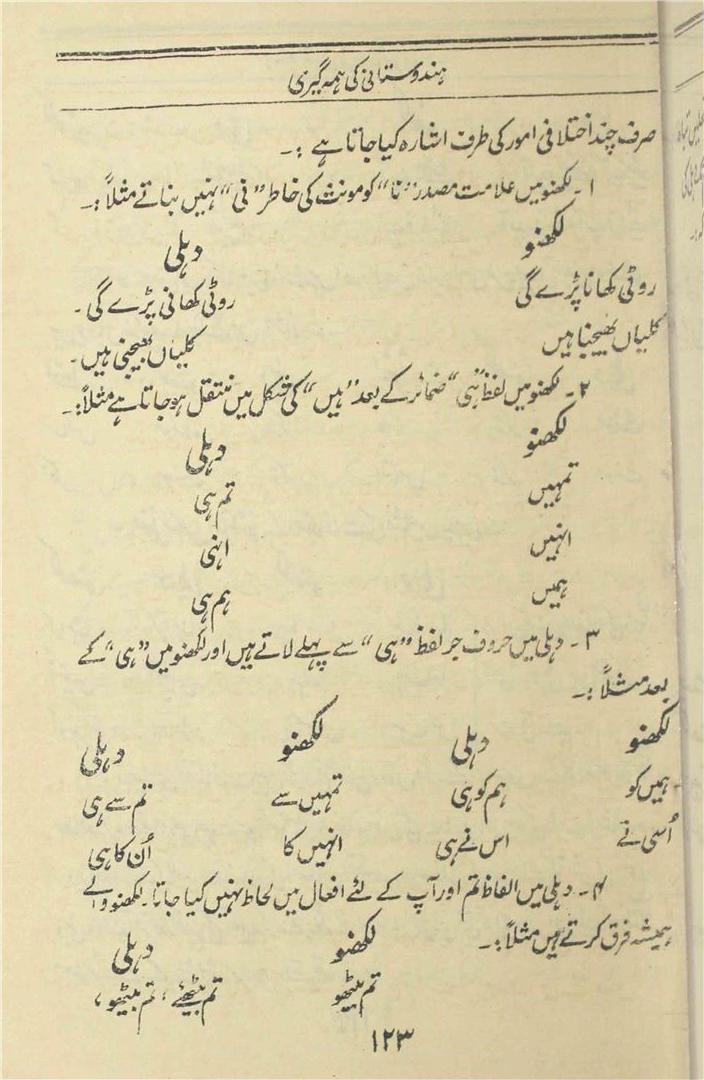 ہندوستانی کی ہمہ گیری
صرف چند اختلافی امور کی طرف اشارہ کیا جاتا ہے :۔
۱۔ لکھنو میں علامت مصدر "نا" کو مونث کی خاطر "نی" نہیں بناتے مثلاً :۔
لکھنو دہلی
روٹی کھانا پڑے گی روٹی کھانی پڑے گی۔
کلیاں بھیجنا ہیں کلیاں بھیجنی ہیں۔
۲۔ لکھنو میں لفظ "ہی" ضمائر کے بعد "ہیں" کی شکل میں منتقل ہو جاتا ہے مثلاً :۔
لکھنو دہلی
تمہیں تم ہی
انہیں انہی
ہمیں ہم ہی
۳۔ دہلی میں حروف جر لفظ "ہی" سے پہلے لاتے ہیں اور لکھنو میں "ہی" کے
بعد مثلاً :۔
لکھنو دہلی لکھنو دہلی
ہمیں کو ہم کو ہی تمہیں سے تم سے ہی
اُسی نے اس نے ہی انہیں کا اُن کا ہی
۴۔ دہلی میں الفاظ تم اور آپ کے لئے افعال میں لحاظ نہیں کیا جاتا۔ لکھنو والے
ہمیشہ فرق کرتے ہیں مثلاً :۔
لکھنو دہلی
تم بیٹھو تم بیٹھئے ، تم بیٹھو ،
۱۲۳